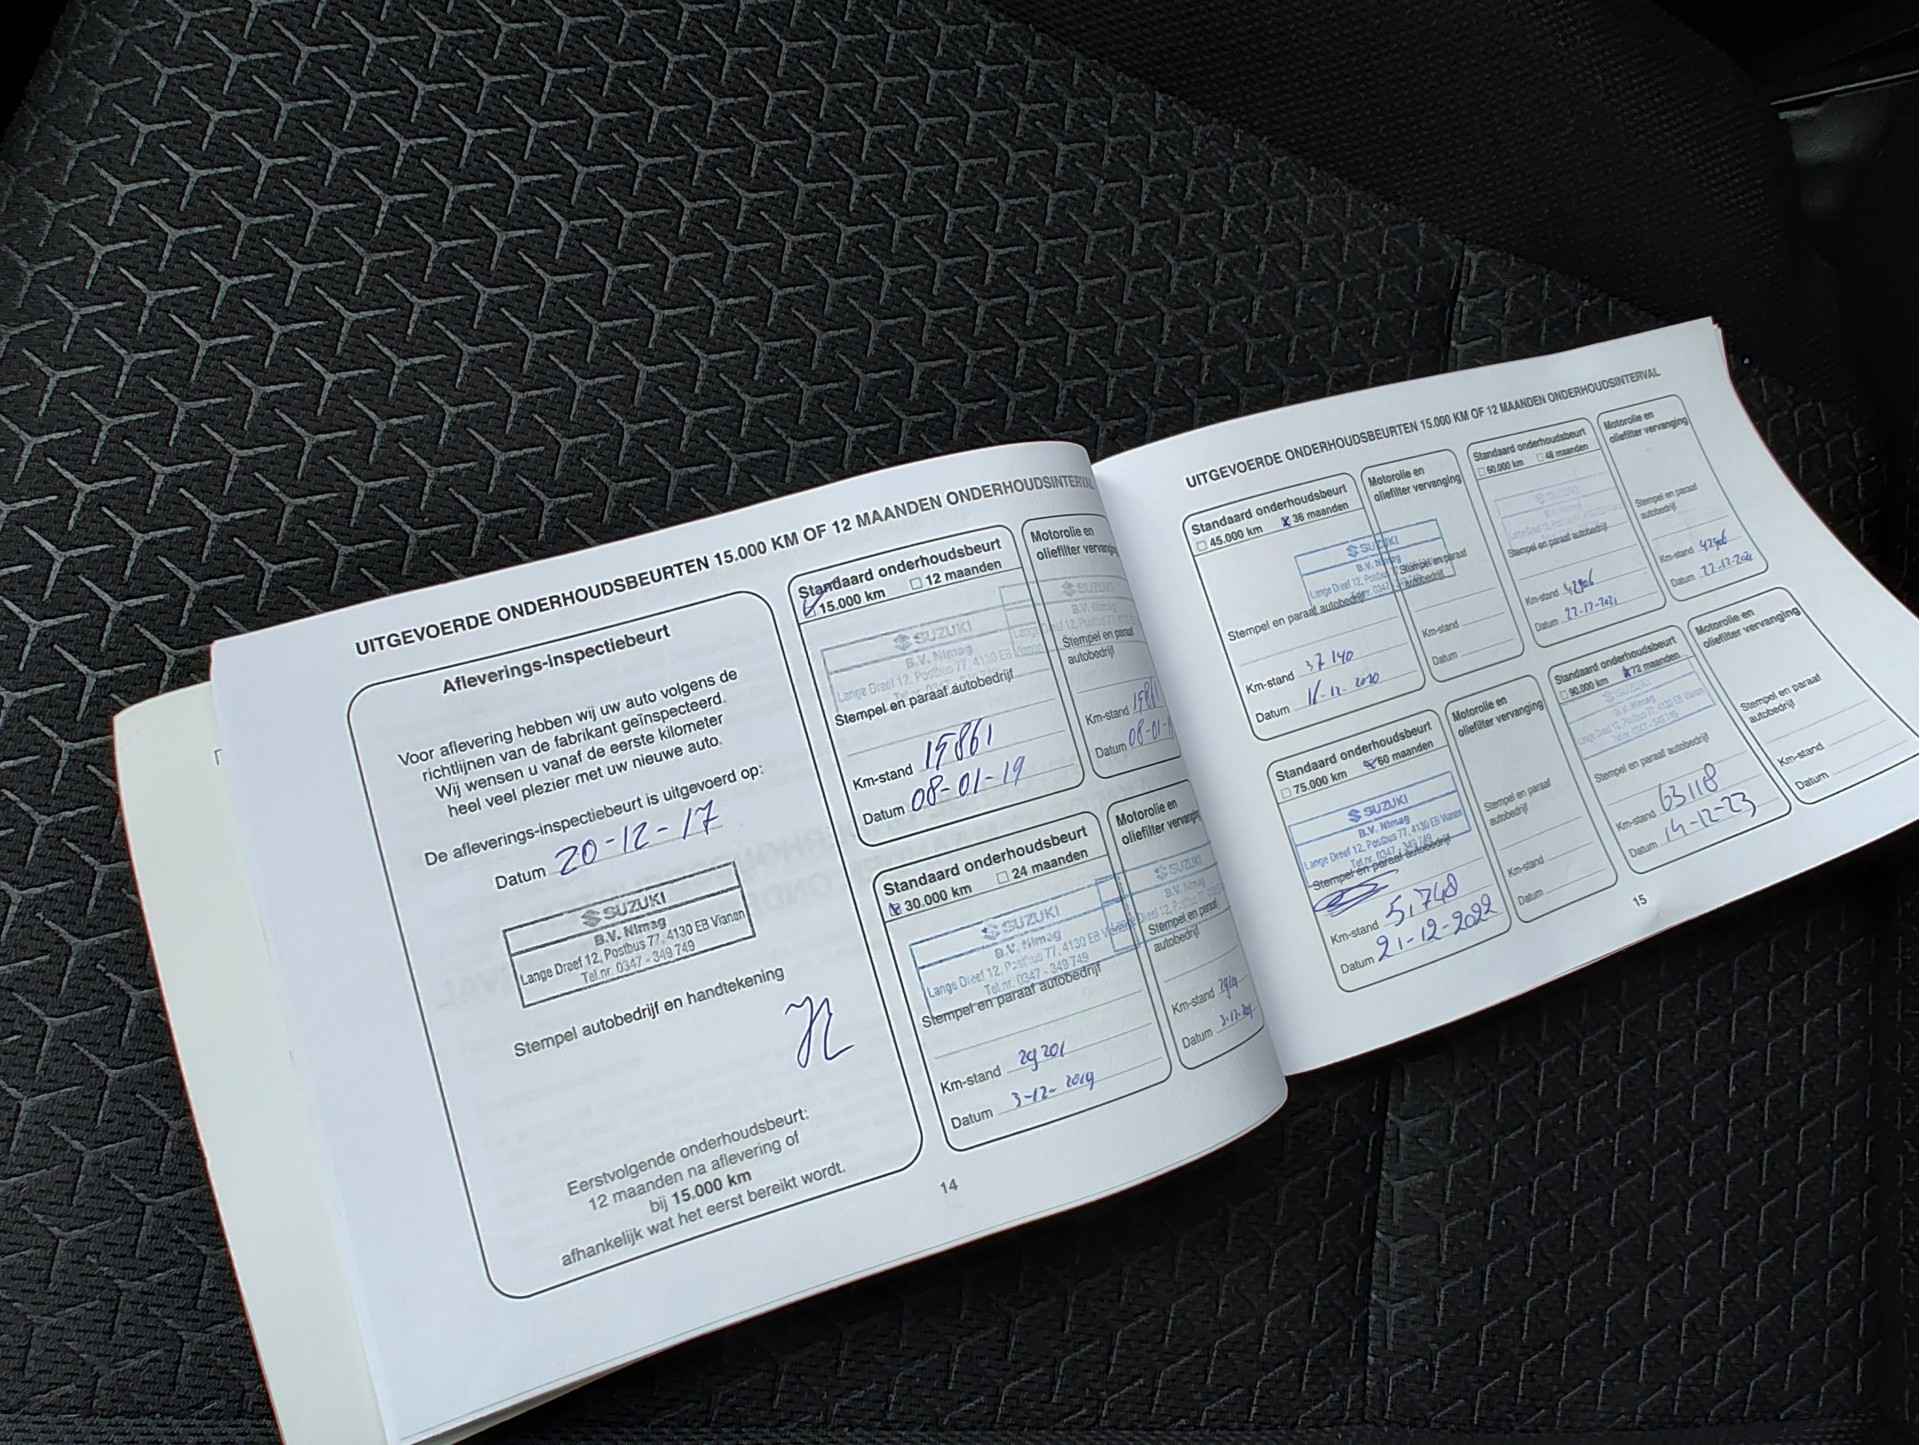 UITGEVOERDE ONDERHOUDSBEURTEN 15.000 KM OF 12 MAANDEN ONDERHOUDSINTERVAL
Afleverings-inspectiebeurt
Voor aflevering hebben wij uw auto volgens de
richtlijnen van de fabrikant geïnspecteerd.
Wij wensen u vanaf de eerste kilometer
heel veel plezier met uw nieuwe auto.
De afleverings-inspectiebeurt is uitgevoerd op:
Datum 20-12-17
SUZUKI
B.V. Nimag
Lange Dreef 12, Postbus 77, 4130 EB Vianen
Tel.nr. 0347 - 349 749
Stempel autobedrijf en handtekening
Eerstvolgende onderhoudsbeurt:
12 maanden na aflevering of
bij 15.000 km
afhankelijk wat het eerst bereikt wordt.
Standaard onderhoudsbeurt
15.000 km 12 maanden
SUZUKI
B.V. Nimag
Lange Dreef 12, Postbus 77, 4130 EB Vianen
Stempel en paraaf autobedrijf
Km-stand 15861
Datum 08-01-19
Motorolie en
oliefilter vervanging
SUZUKI
B.V. Nimag
Stempel en paraaf
autobedrijf
Km-stand 15861
Datum 08-01-1
Standaard onderhoudsbeurt
30.000 km 24 maanden
SUZUKI
B.V. Nimag
Lange Dreef 12, Postbus 77, 4130 EB Vianen
Tel.nr. 0347 - 349 749
Stempel en paraaf autobedrijf
Km-stand 29201
Datum 3-12-2019
Motorolie en
oliefilter vervanging
SUZUKI
B.V. Nimag
Stempel en paraaf
autobedrijf
Km-stand
Datum
14
UITGEVOERDE ONDERHOUDSBEURTEN 15.000 KM OF 12 MAANDEN ONDERHOUDSINTERVAL
Standaard onderhoudsbeurt
45.000 km 36 maanden
SUZUKI
B.V. Nimag
Lange Dreef 12, Postbus 77
Stempel en paraaf autobedrijf
Km-stand 37140
Datum 16-12-2020
Motorolie en
oliefilter vervanging
Stempel en paraaf
autobedrijf
Km-stand
Datum
Standaard onderhoudsbeurt
60.000 km 48 maanden
Stempel en paraaf autobedrijf
Km-stand 42906
Datum 22-12-2021
Motorolie en
oliefilter vervanging
Stempel en paraaf
autobedrijf
Km-stand 42906
Datum 22-12-2021
Standaard onderhoudsbeurt
75.000 km 60 maanden
SUZUKI
B.V. Nimag
Lange Dreef 12, Postbus 77, 4130 EB Vianen
Tel.nr. 0347 - 349 749
Stempel en paraaf autobedrijf
Km-stand 51748
Datum 21-12-2022
Motorolie en
oliefilter vervanging
Stempel en paraaf
autobedrijf
Km-stand
Datum
Standaard onderhoudsbeurt
90.000 km 72 maanden
SUZUKI
B.V. Nimag
Stempel en paraaf autobedrijf
Km-stand 63118
Datum 14-12-23
Motorolie en
oliefilter vervanging
Stempel en paraaf
autobedrijf
Km-stand
Datum
15